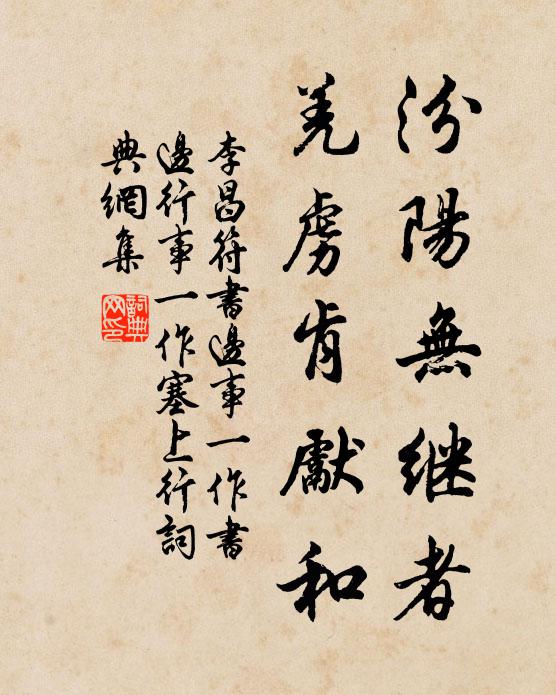 汾陽無継者
羌虜肯獻和
李昌符書邊事一作書
邊行事一作塞上行詞
典網集
詞典
网印